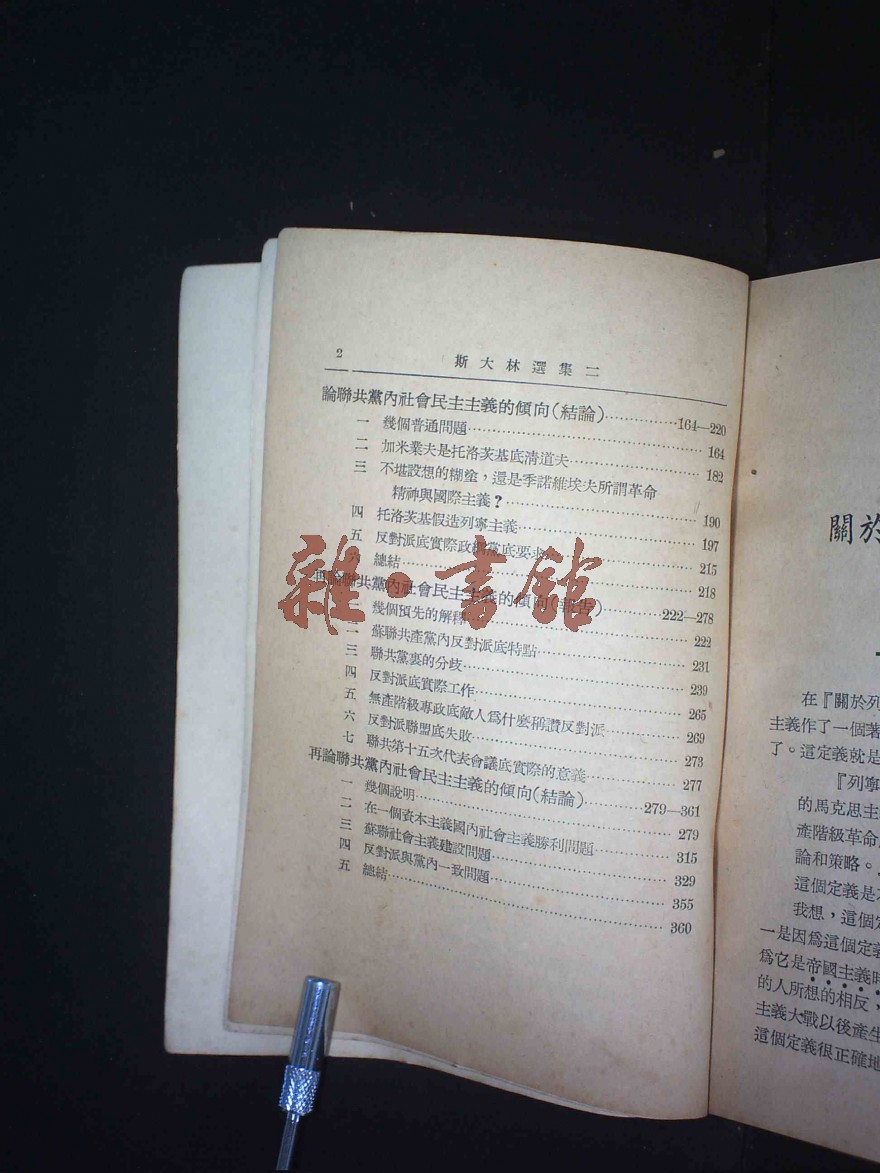 2
斯大林選集二
論聯共黨內社會民主主義的傾向(結論)…………164—220
一 幾個普通問題……………164
二 加米業夫是托洛茨基底清道夫……………182
三 不堪設想的糊塗，還是季諾維埃夫所謂革命
精神與國際主義？……………190
四 托洛茨基假造列寧主義……………197
五 反對派底實際政綱黨底要求……………215
六 總結……………218
再論聯共黨內社會民主主義的傾向(報告)…………222—278
一 幾個預先的解釋……………222
二 蘇聯共產黨內反對派底特點……………231
三 聯共黨裏的分歧……………239
四 反對派底實際工作……………265
五 無產階級專政底敵人爲什麼稱讚反對派……………269
六 反對派聯盟底失敗……………273
七 聯共第十五次代表會議底實際的意義……………277
再論聯共黨內社會民主主義的傾向(結論)…………279—361
一 幾個說明……………279
二 在一個資本主義國內社會主義勝利問題……………315
三 蘇聯社會主義建設問題……………329
四 反對派與黨內一致問題……………355
五 總結……………360
雜·書館
關於
在『關於列
主義作了一個著
了。這定義就是
『列寧
的馬克思主
產階級革命
論和策略。
這個定義是
我想，這個定
一是因爲這個定義
爲它是帝國主義時
的人所想的相反，
主義大戰以後產生
這個定義很正確地